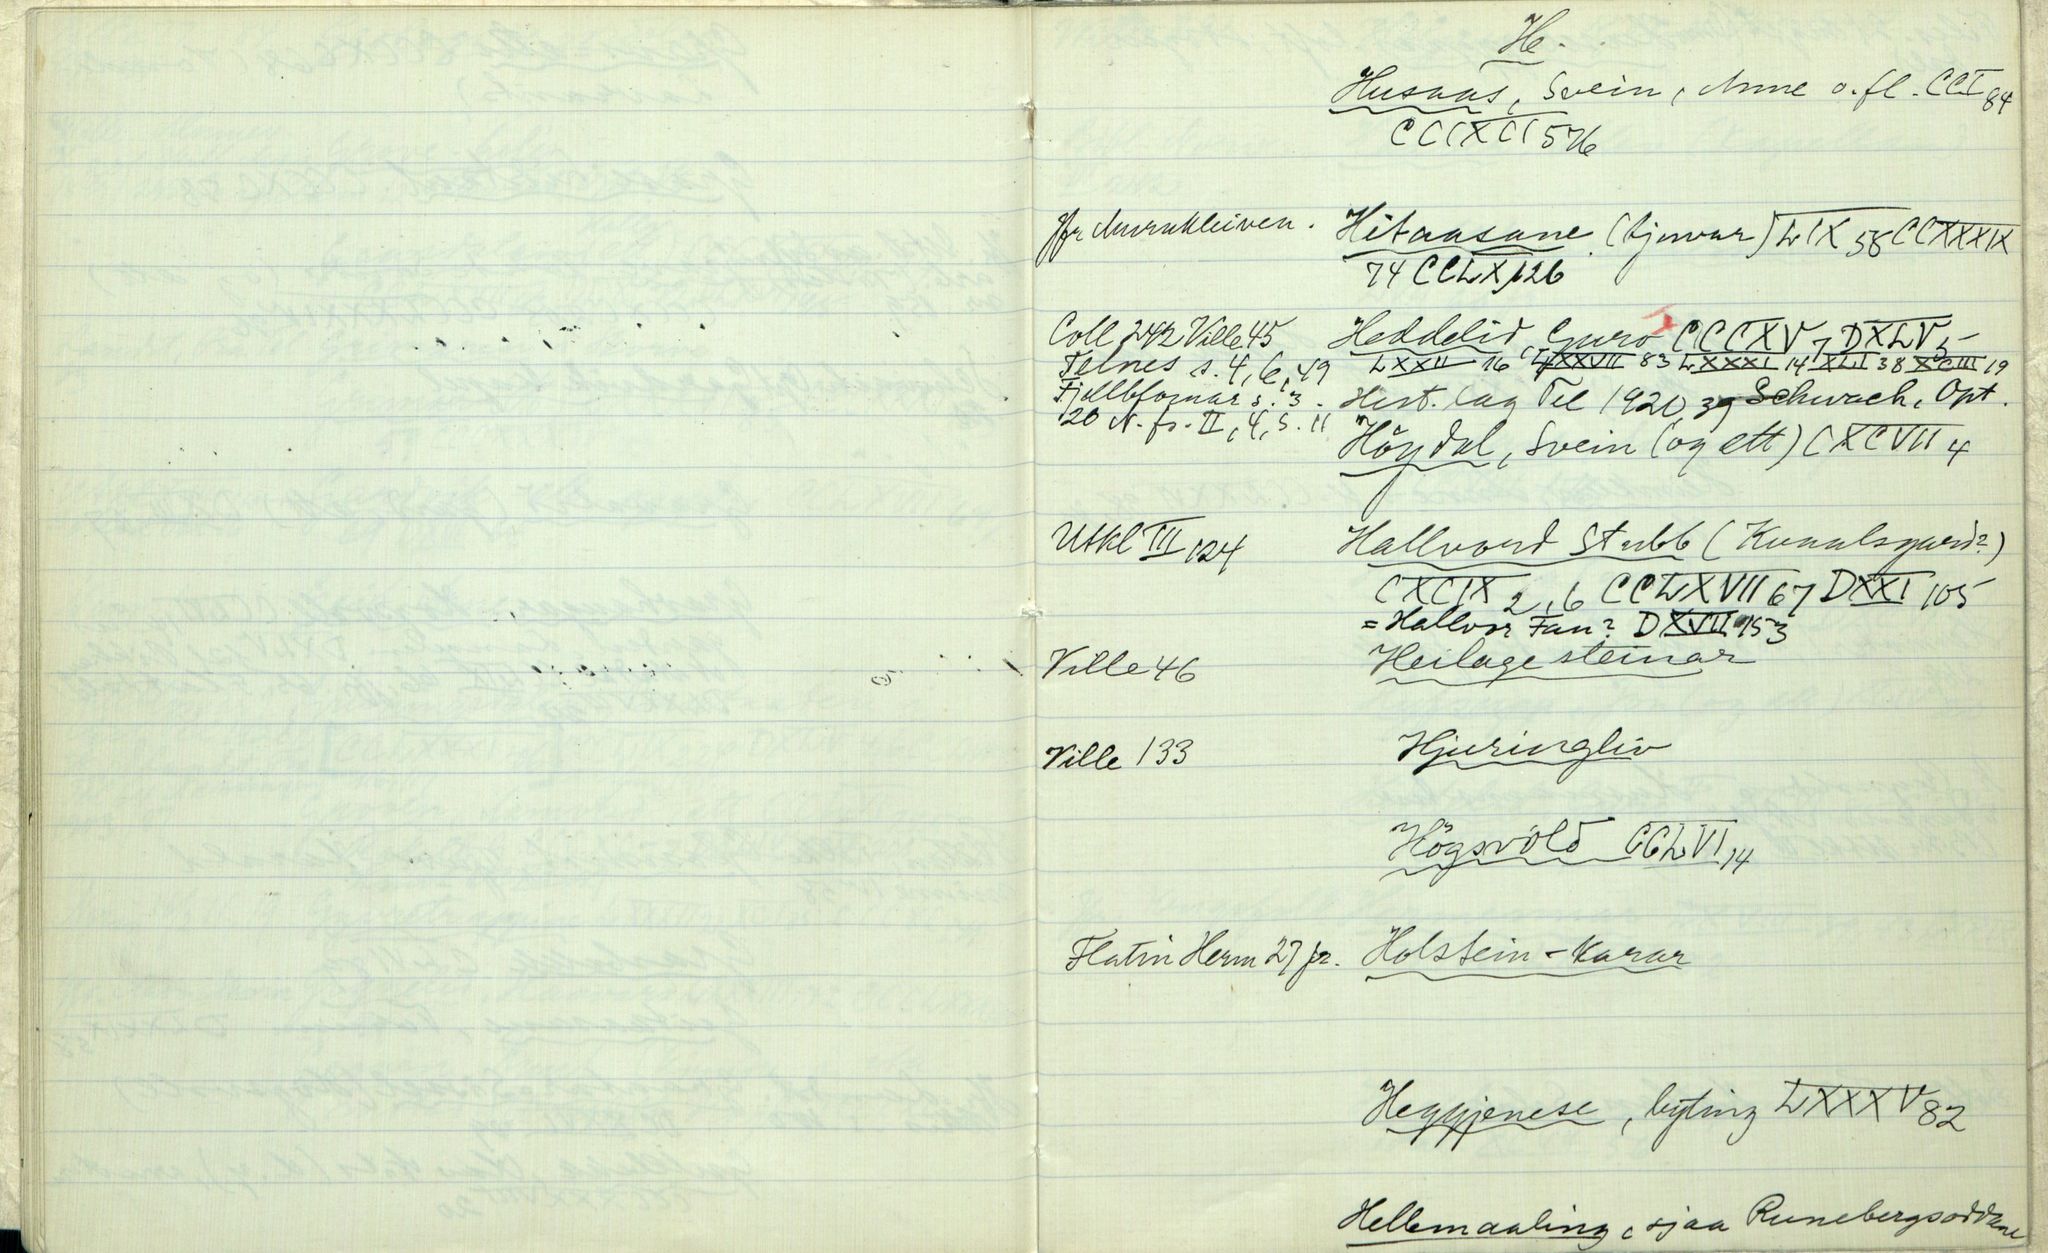 He.
Husaas, Svein, Anne o. fl. CCI 84
CCCXCI 576
Jfr Murukleiven. Hitaasane (Gjuvar) LIX 58 CCXXXIX
74 CCLX 126
Coll 242 Ville 45 Heddelid, Guro CCCXV 7 DXLV 5
Telnes s. 4, 6, 49 LXXII 16 LXXVII 83 LXXXI 14 XLI 38 XCIII 19
Fjellbfomar s. 3. Hist. lag Tel 1920, 39 Schwach, Opt.
20 N. fr. II, 4, S. 11
Höydal, Svein (og ett) CXCVII 4
Utkl III 124 Hallvord Stubb (Kunalsgard?)
CXCIX 2, 6 CCLXVII 67 DXXI 105
= Hallvor Fan? DXVII 153
Ville 46 Heilage steinar
Ville 133 Hjuringliv
Högsvöld CCLVI 14
Flatin Herm 27 fr. Holstein-karar
Heggjenese, byting LXXXV 82
Hellemaaling, sjaa Runebergsoddane